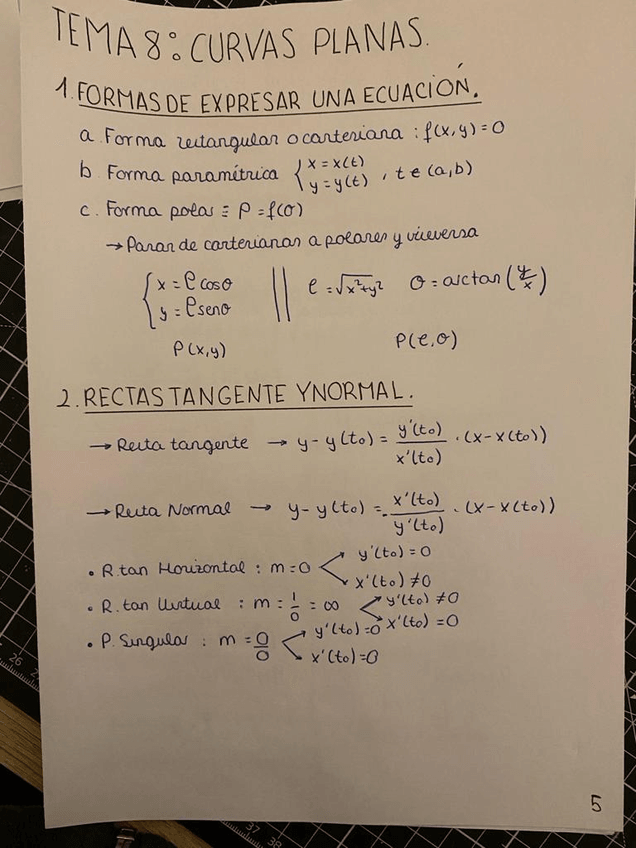 TEMA 8: CURVAS PLANAS.
1. FORMAS DE EXPRESAR UNA ECUACIÓN.
a. Forma rectangular o cartesiana : f(x,y)=0
b. Forma paramétrica { x = x(t) y = y(t) , t ∈ (a,b)
c. Forma polar ≡ ρ = f(θ)
→ Pasar de cartesianas a polares y viceversa
{ x = ρ cosθ y = ρ senθ || ρ = √x²+y² θ = arctan (y/x)
P(x,y) P(ρ,θ)
2. RECTAS TANGENTE Y NORMAL.
→ Recta tangente → y - y(t₀) = y'(t₀)/x'(t₀) · (x - x(t₀))
→ Recta Normal → y - y(t₀) = - x'(t₀)/y'(t₀) · (x - x(t₀))
• R. tan Horizontal : m = 0 < y'(t₀) = 0 x'(t₀) ≠ 0
• R. tan Vertical : m = 1/0 = ∞ < y'(t₀) ≠ 0 x'(t₀) = 0
• P. Singular : m = 0/0 < y'(t₀) = 0 x'(t₀) = 0
5
26
37
38